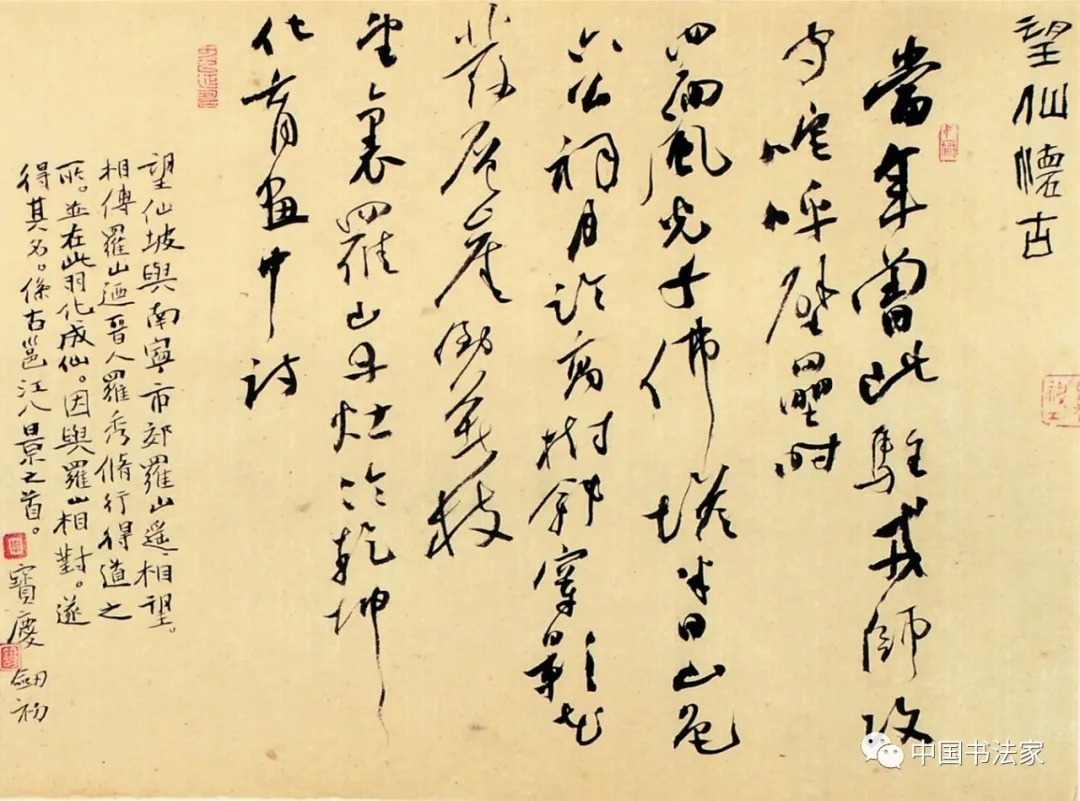 望仙懷古
當年曾此駐戎師攻
守喧呼壁壘时
四面風光千佛塔半日山色
六公祠月臨高樹穿影花
發層崖倒枝
望裏羅山丹灶冷乾坤
化育畫中詩
望仙坡與南寧市郊羅山遥相望。
相傳羅山迺晋人羅秀脩行得道之
所。並在此羽化成仙。因與羅山相對。遂
得其名。係古邕江八景之首。
寶慶 劍初
中国书法家